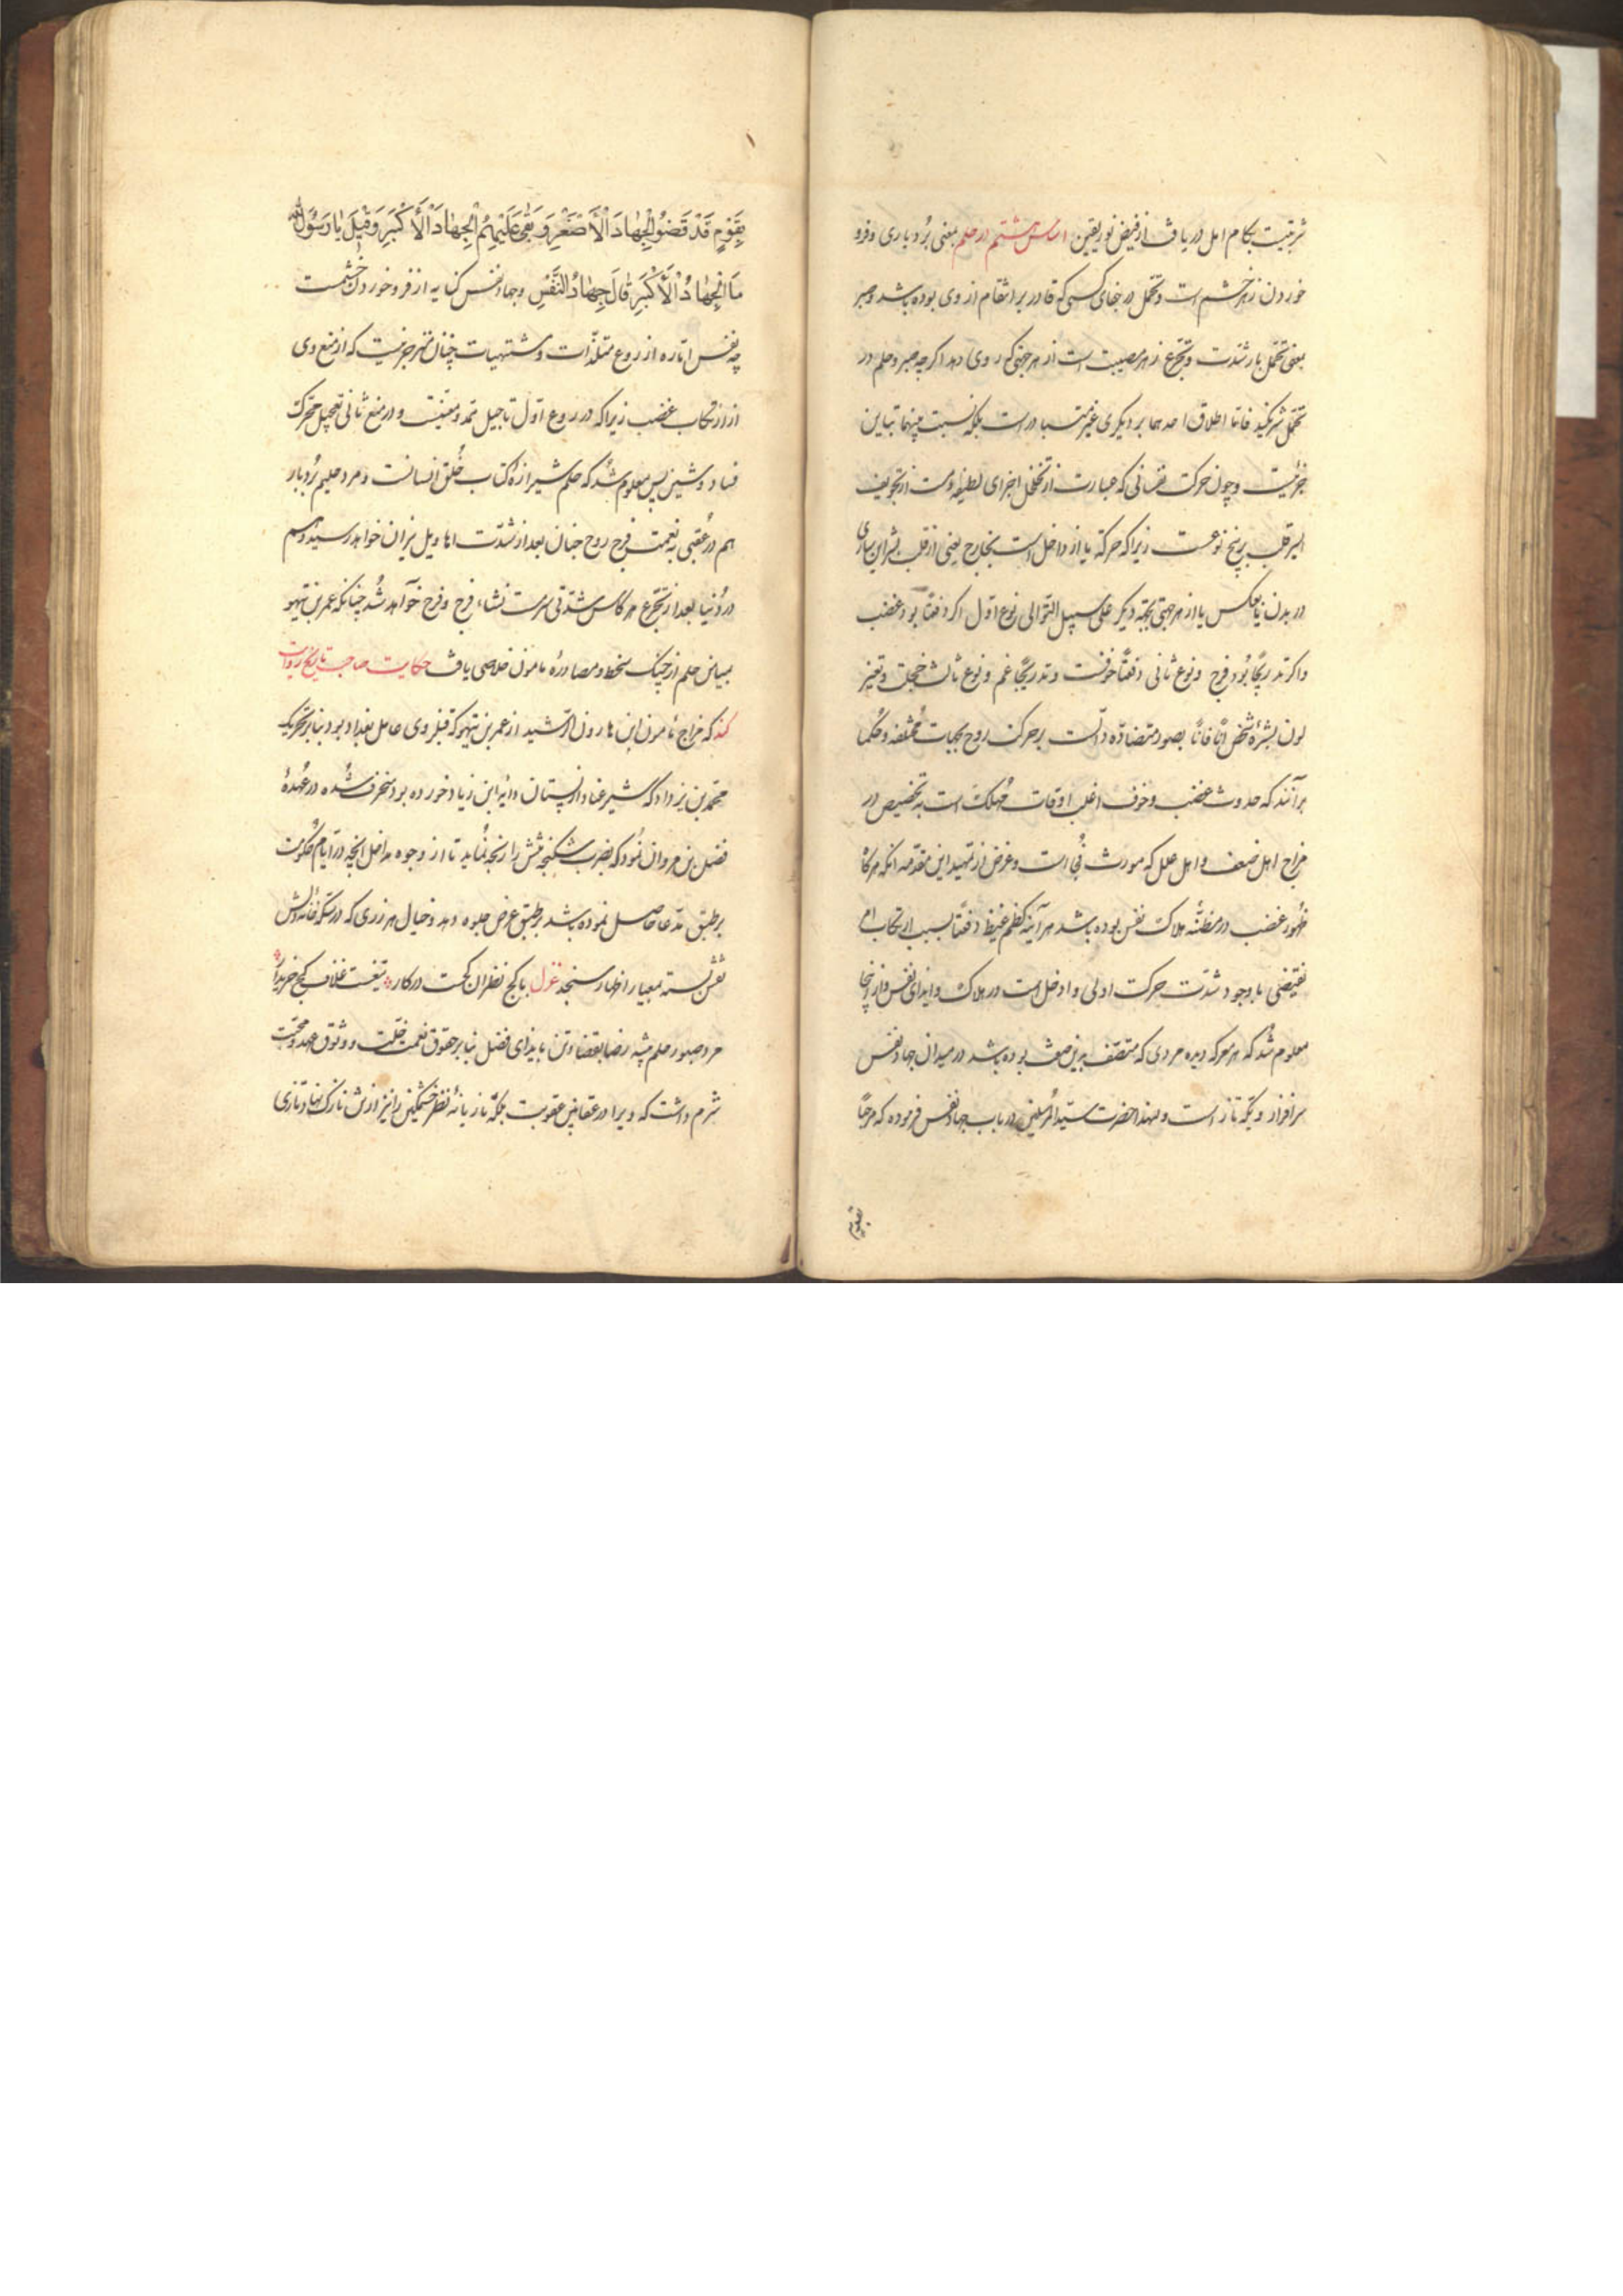 شربتیست بکام اهل دریافت از فیض نور یقین اساس هشتم در حلم بمعنی بُردباری و فرو
خوردن زهر خشم است و تحمل در جفای کسی که قادر بر انتقام از وی بوده باشد و صبر
بمعنی تحمّل بار شدّت و تجرّع زهر مصیبت است از هر جهتی که روی دهد اگر چه صبر و حلم در
تحمّل شریکند فاما اطلاق احدهما بر دیگری غیر متبادر است بلکه نسبت بینهما تباین
جزئیست و چون حرکت نفسانی که عبارت از تخلخل اجزای لطیفه است از تجویف
ایسر قلب بر پنج نوعست زیرا که حرکة یا از داخل است بخارج یعنی از قلب بشراین ساری
در بدن یا بعکس یا از هر جهتی بجهة دیگر علی سبیل التوالی نوع اوّل اگر دفعتًا بود غضب
و اگر تدریجًا بُود فرح و نوع ثانی دفعتًا خوفست و تدریجًا غم و نوع ثالث خجلت و تغیّر
لون بشرهٔ شخص آنًا فانًا بصور متضادّه دالّست بر حرکت روح بجهات مختلفه و حکما
برآنند که حدوث غضب و خوف اغلب اوقات مُهلک است به تخصیص در
مزاج اهل ضعف و اهل علل که مورث است و غرض از تمهید این مقدّمه آنکه هرگاه
ظهور غضب در مظنّهٔ هلاکت نفس بوده باشد هر آینه کظم غیظ دفعتًا بسبب ارتکاب امر
نقیضی با وجود شدّت حرکت اولی و ادخل است در هلاک و ایذای نفس و از اینجا
معلوم شُد که هر معرکه دیده مردی که متّصف بدین صفت بوده باشد در میدان جهاد نفس
سرافراز و یکّه تاز است و لهذا حضرت سیّد المرسلین در باب جهاد نفس فرموده که مرحبًا
بقوم
بِقَوْمٍ قَدْ قَضَوُا الْجِهَادَ الْأَصْغَرِ وَ بَقِیَ عَلَیْهِمُ الْجِهَادَ الْأَکْبَرِ وَ قِیلَ یَا رَسُولَ اللّه
مَا الْجِهَادُ الْأَکْبَرِ قَالَ جِهَادُ النَّفْسِ و جهاد نفس کنایه از فرو خوردن خشمست
چه نفس امّاره از روع متلذّات و مشتهیات چنان متهرجز نیست که از منع وی
از ارتکاب غضب زیرا که در روع اوّل تاجیل ممد و معینست و در منع ثانی تعجیل محرّک
فساد و شین پس معلوم شُد که حلم شیرازهٔ کتاب خُلق انسانست و مرد حلیم بُردبار
هم در عُقبی به نعمت فرح روح جنان بعد از شدّت اهاویل نیران خواهد رسید و هم
در دُنیا بعد از تجرّع هر کاس شدّتی سرمست نشاء فرح و فرح خواهد شُد چنانکه عمر بن نهیو
بمیامن حلم از چنک سخط و مصادرهٔ مامون خلاصی یافت حکایت صاحب تاریخ روایت
کند که مزاج مأمون ابن هارون الرّشید از عمر بن نهیو که قبل وی عامل بغداد بود بنابر تحریک
محمّد بن یزداد که شیر عناد از پستان دایهٔ ابن زیاد خورده بود منحرف شُده در عُهدهٔ
فضل بن مروان نُمود که بضرب شکنجه تنش را رنجه نُماید تا از وجوه مداخل آنچه در ایّام حُکومت
بر طبق مدّعا حاصل نموده باشد بر طبق عرض جلوه دهد و خیال هر زری که در سکّه خانهٔ دلش
نقش بسته بمعیار اظهار سنجد غزل با کج نظران کجت در کار تیغست غلاف کج خریدار
مرد صبور حلم پیشه رضا بقضا و تن بایذای فضل بنابر حقوق نعمت خلّت و وثوق عهد و محبّت
شرم داشت که ویرا در عقابین عقوبت بلکه تازیانهٔ نظر خشمکین را نیز از تن نازک نهاد تازی